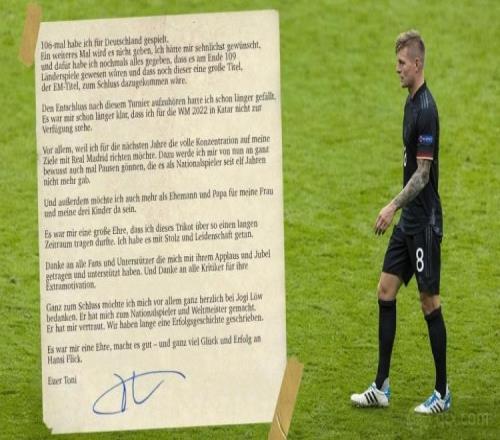 106-mal habe ich für Deutschland gespielt.
Ein weiteres Mal wird es nicht geben. Ich hätte mir sehnlichst gewünscht,
und dafür habe ich nochmals alles gegeben, dass es am Ende 109
Länderspiele gewesen wären und dass noch dieser eine große Titel,
der EM-Titel, zum Schluss dazugekommen wäre.
Den Entschluss nach diesem Turnier aufzuhören hatte ich schon länger gefällt.
Es war mir schon länger klar, dass ich für die WM 2022 in Katar nicht zur
Verfügung stehe.
Vor allem, weil ich für die nächsten Jahre die volle Konzentration auf meine
Ziele mit Real Madrid richten möchte. Dazu werde ich mir von nun an ganz
bewusst auch mal Pausen gönnen, die es als Nationalspieler seit elf Jahren
nicht mehr gab.
Und außerdem möchte ich auch mehr als Ehemann und Papa für meine Frau
und meine drei Kinder da sein.
Es war mir eine große Ehre, dass ich dieses Trikot über so einen langen
Zeitraum tragen durfte. Ich habe es mit Stolz und Leidenschaft getan.
Danke an alle Fans und Unterstützer die mich mit ihrem Applaus und Jubel
getragen und unterstützt haben. Und Danke an alle Kritiker für ihre
Extramotivation.
Ganz zum Schluss möchte ich mich vor allem ganz herzlich bei Jogi Löw
bedanken. Er hat mich zum Nationalspieler und Weltmeister gemacht.
Er hat mir vertraut. Wir haben lange eine Erfolgsgeschichte geschrieben.
Es war mir eine Ehre, macht es gut – und ganz viel Glück und Erfolg an
Hansi Flick.
Euer Toni
8